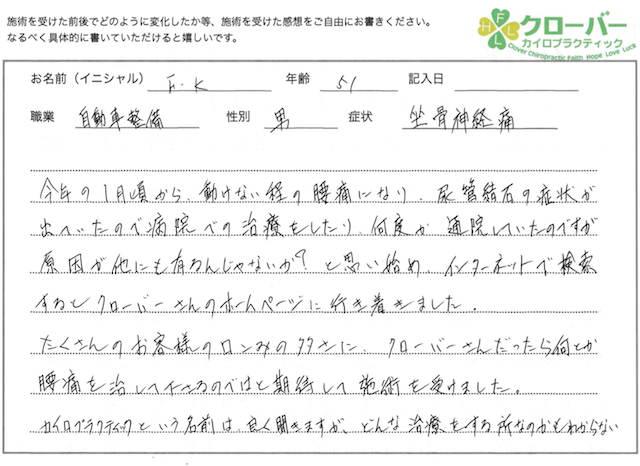 施術を受けた前後でどのように変化したか等、施術を受けた感想をご自由にお書きください。
なるべく具体的に書いていただけると嬉しいです。
F L H L
クローバー
カイロプラクティック
Clover Chiropractic Faith Hope Love Luck
お名前（イニシャル） F.K 年齢 51 記入日
職業 自動車整備 性別 男 症状 坐骨神経痛
今年の1月頃から、動けない程の腰痛になり、尿管結石の症状が
出ていたので病院での治療をしたり、何度か通院していたのですが
原因が他にも有るんじゃないか?と思い始め、インターネットで検索
するとクローバーさんのホームページに行き着きました。
たくさんのお客様の口コミの多さに、クローバーさんだったら何とか
腰痛を治して下さるのではと期待して施術を受けました。
カイロプラクティックという名前は、良く聞きますが、どんな治療をする所なのかもわからない